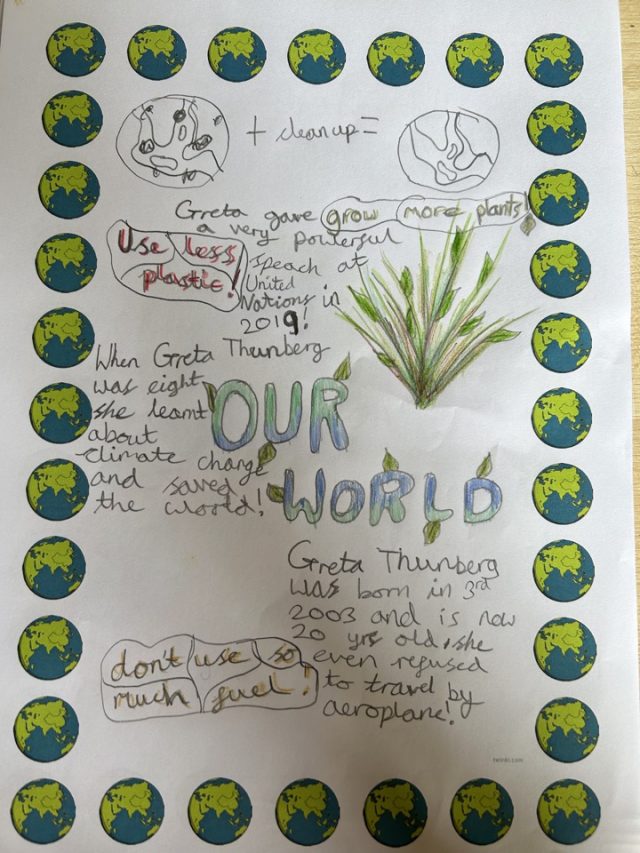 + clean up =
Greta gave
a very powerful
speach at
United
Nations in
2019!
grow more plants!
Use less
plastic!
When Greta Thunberg
was eight
she learnt
about
climate change
and saved
the world!
OUR
WORLD
Greta Thunberg
was born in 3rd
2003 and is now
20 yrs old, she
even refused
to travel by
aeroplane!
don't use so
much fuel!
twinkl.com